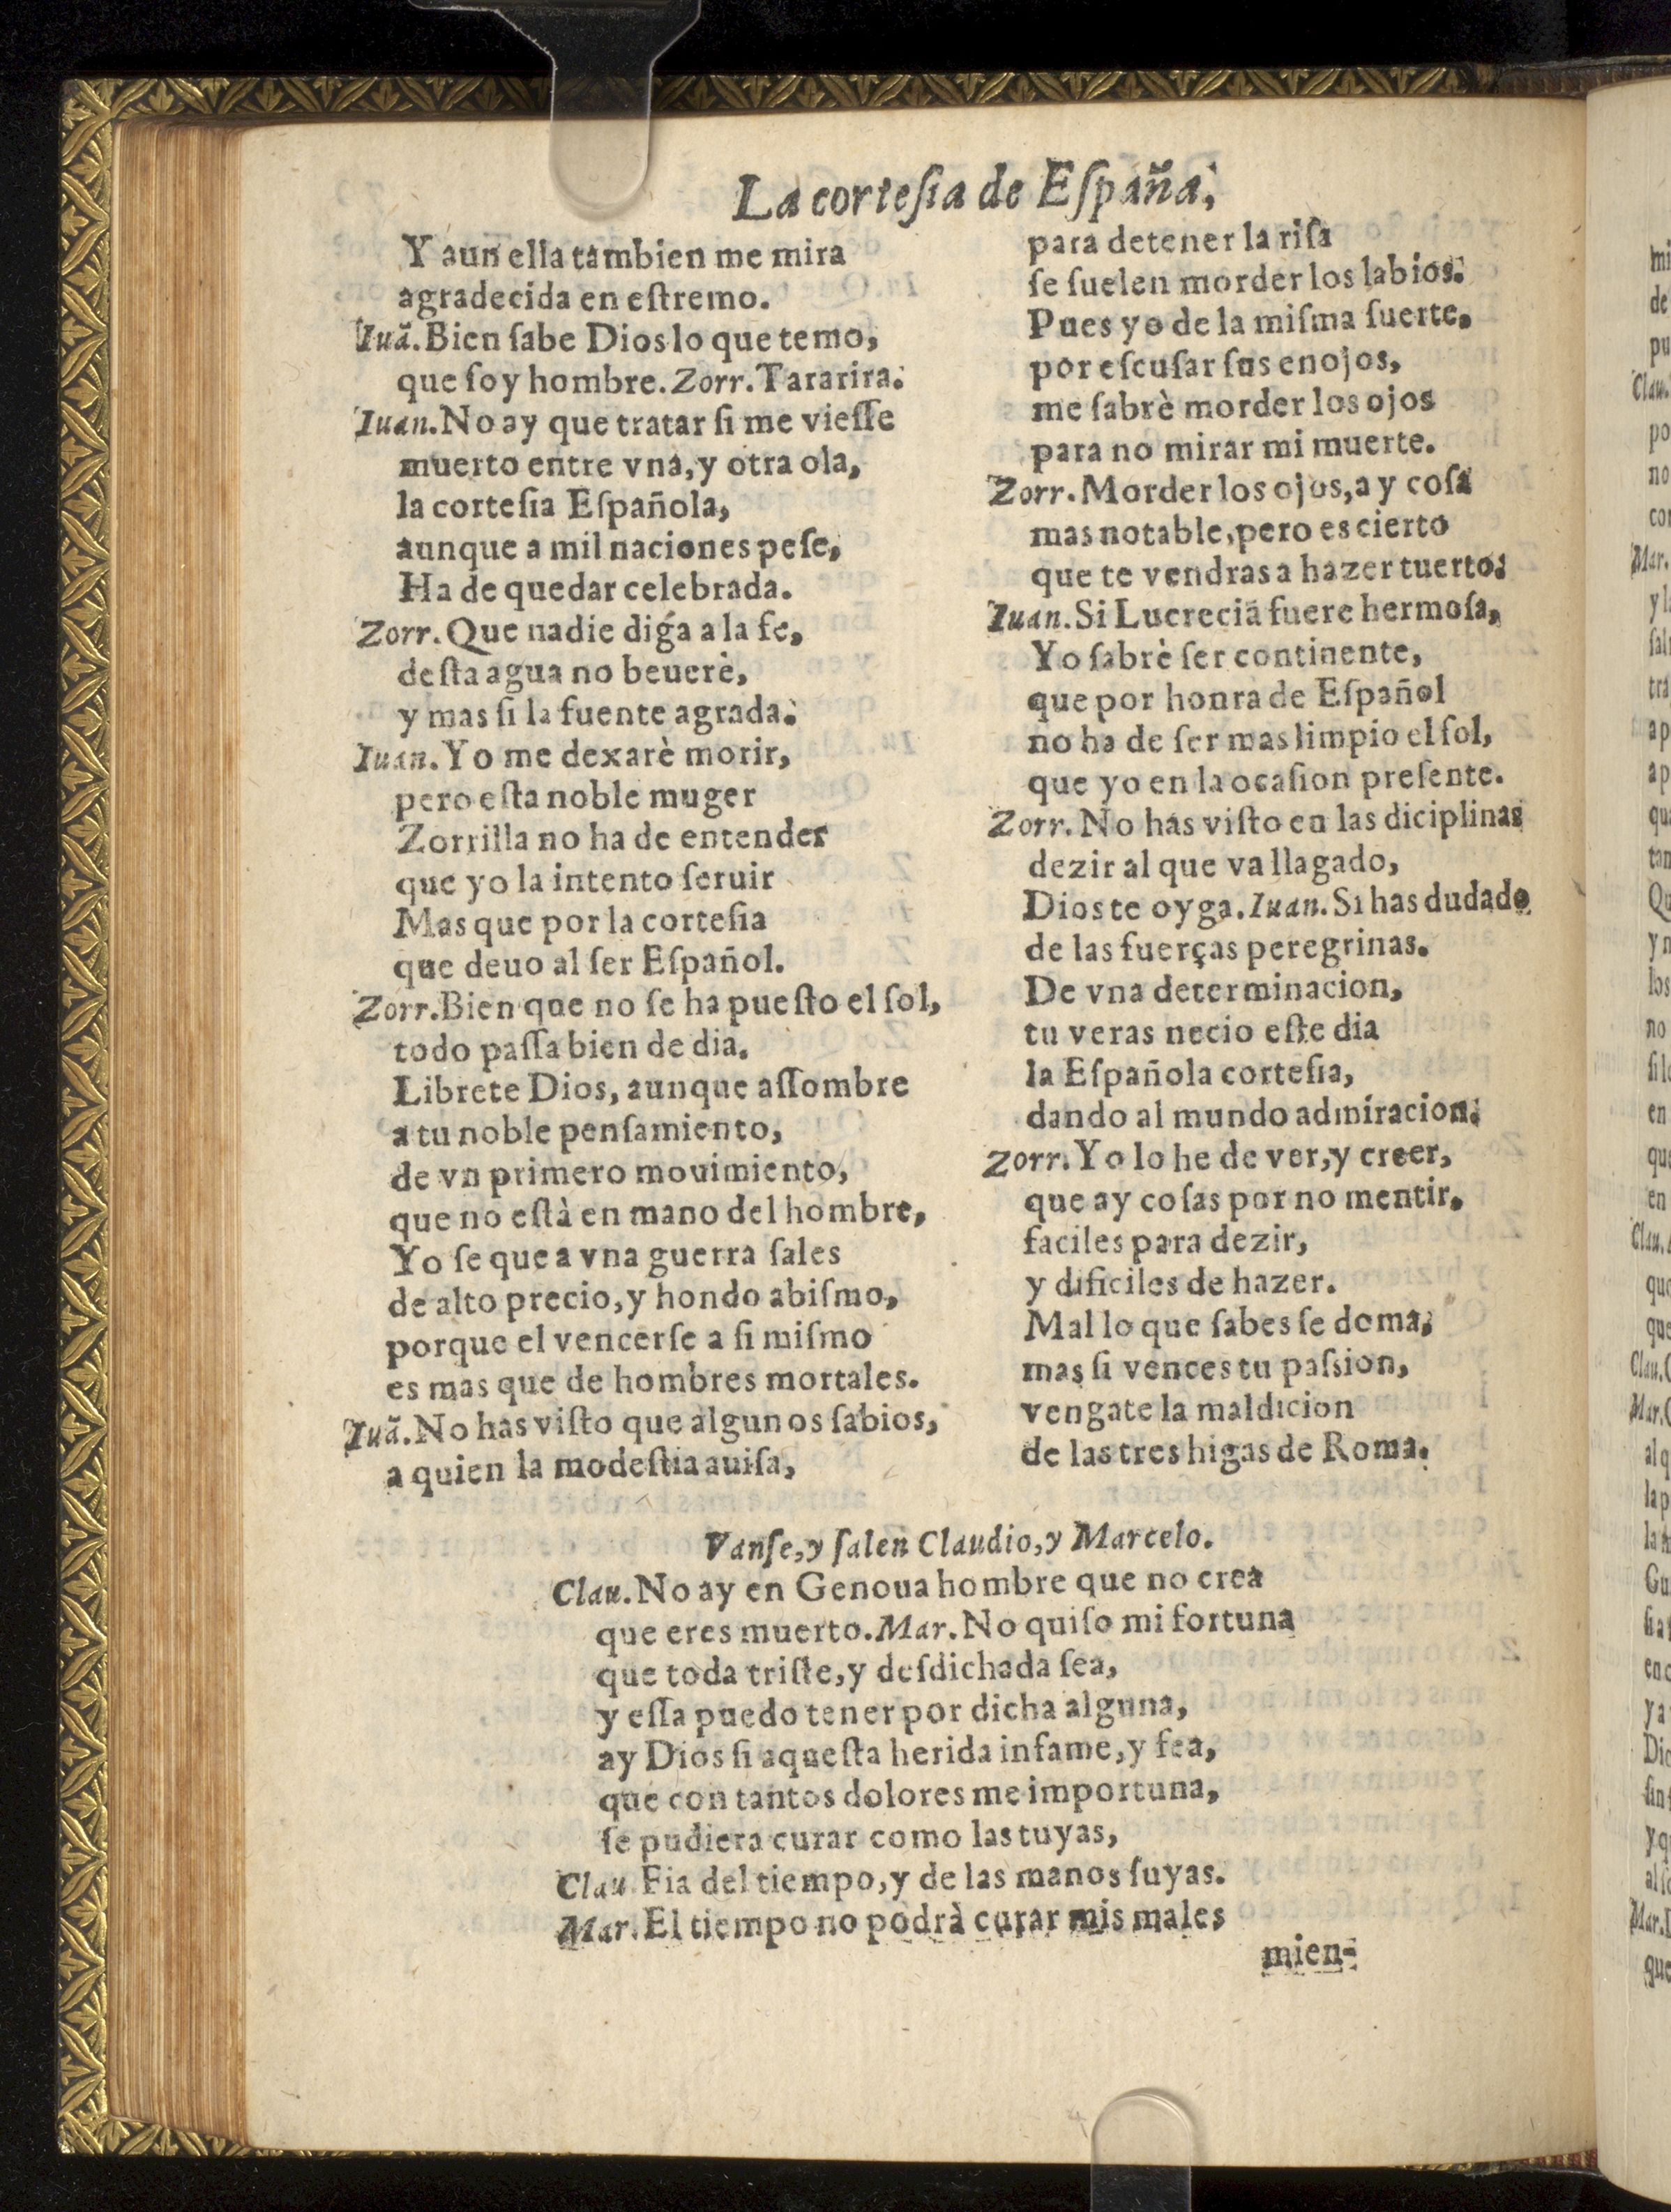 La corteſia de Eſpaña,
Y aun ella tambien me mira
agradecida en eſtremo.
Iuã. Bien ſabe Dios lo que temo,
que ſoy hombre. Zorr. Tararira.
Iuan. No ay que tratar ſi me vieſſe
muerto entre vna, y otra ola,
la corteſia Eſpañola,
aunque a mil naciones peſe,
Ha de quedar celebrada.
Zorr. Que nadie diga a la fe,
deſta agua no beuerè,
y mas ſi la fuente agrada.
Iuan. Yo me dexarè morir,
pero eſta noble muger
Zorrilla no ha de entender
que yo la intento ſeruir
Mas que por la corteſia
que deuo al ſer Eſpañol.
Zorr. Bien que no ſe ha pueſto el ſol,
todo paſſa bien de dia.
Librete Dios, aunque aſſombre
a tu noble penſamiento,
de vn primero mouimiento,
que no eſtà en mano del hombre,
Yo ſe que a vna guerra ſales
de alto precio, y hondo abiſmo,
porque el vencerſe a ſi miſmo
es mas que de hombres mortales.
Iuã. No has viſto que algunos ſabios,
a quien la modeſtia auiſa,
para detener la riſa
ſe ſuelen morder los labios.
Pues yo de la miſma ſuerte,
por eſcuſar ſus enojos,
me ſabrè morder los ojos
para no mirar mi muerte.
Zorr. Morder los ojos, ay coſa
mas notable, pero es cierto
que te vendras a hazer tuerto.
Iuan. Si Lucrecia fuere hermoſa,
Yo ſabrè ſer continente,
que por honra de Eſpañol
no ha de ſer mas limpio el ſol,
que yo en la ocaſion preſente.
Zorr. No has viſto en las diciplinas
dezir al que va llagado,
Dios te oyga. Iuan. Si has dudado
de las fuerças peregrinas.
De vna determinacion,
tu veras necio eſte dia
la Eſpañola corteſia,
dando al mundo admiracion.
Zorr. Yo lo he de ver, y creer,
que ay coſas por no mentir,
faciles para dezir,
y dificiles de hazer.
Mal lo que ſabes ſe doma,
mas ſi vences tu paſsion,
vengate la maldicion
de las tres higas de Roma.
Vanſe, y ſalen Claudio, y Marcelo.
Clau. No ay en Genoua hombre que no crea
que eres muerto. Mar. No quiſo mi fortuna
que toda triſte, y deſdichada ſea,
y eſſa puedo tener por dicha alguna,
ay Dios ſi aqueſta herida infame, y fea,
que con tantos dolores me importuna,
ſe pudiera curar como las tuyas,
Clau. Fia del tiempo, y de las manos ſuyas.
Mar. El tiempo no podrà curar mis males
mien-